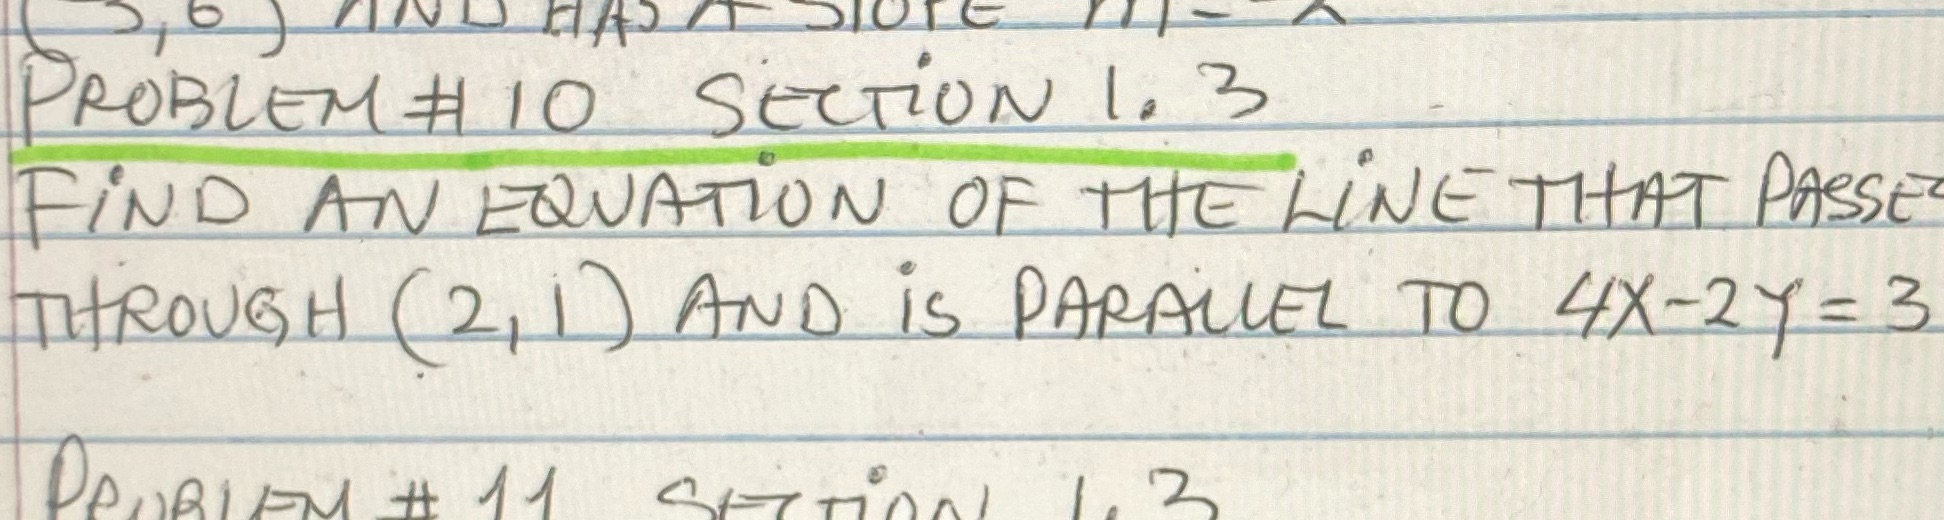 (-3,6) AND HAS A SLOPE M = -2
PROBLEM # 10 SECTION 1.3
FIND AN EQUATION OF THE LINE THAT PASSES
THROUGH (2,1) AND IS PARALLEL TO 4X-2Y=3
PROBLEM # 11 SECTION 1.3